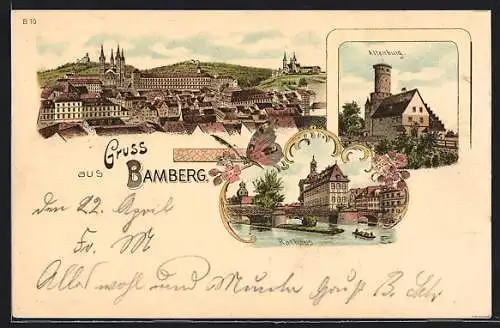 B 10
Altenburg.
Gruss
aus
BAMBERG.
Rathaus
den 22. April
Fr. M
Alles wohl und Munter Gruß B.